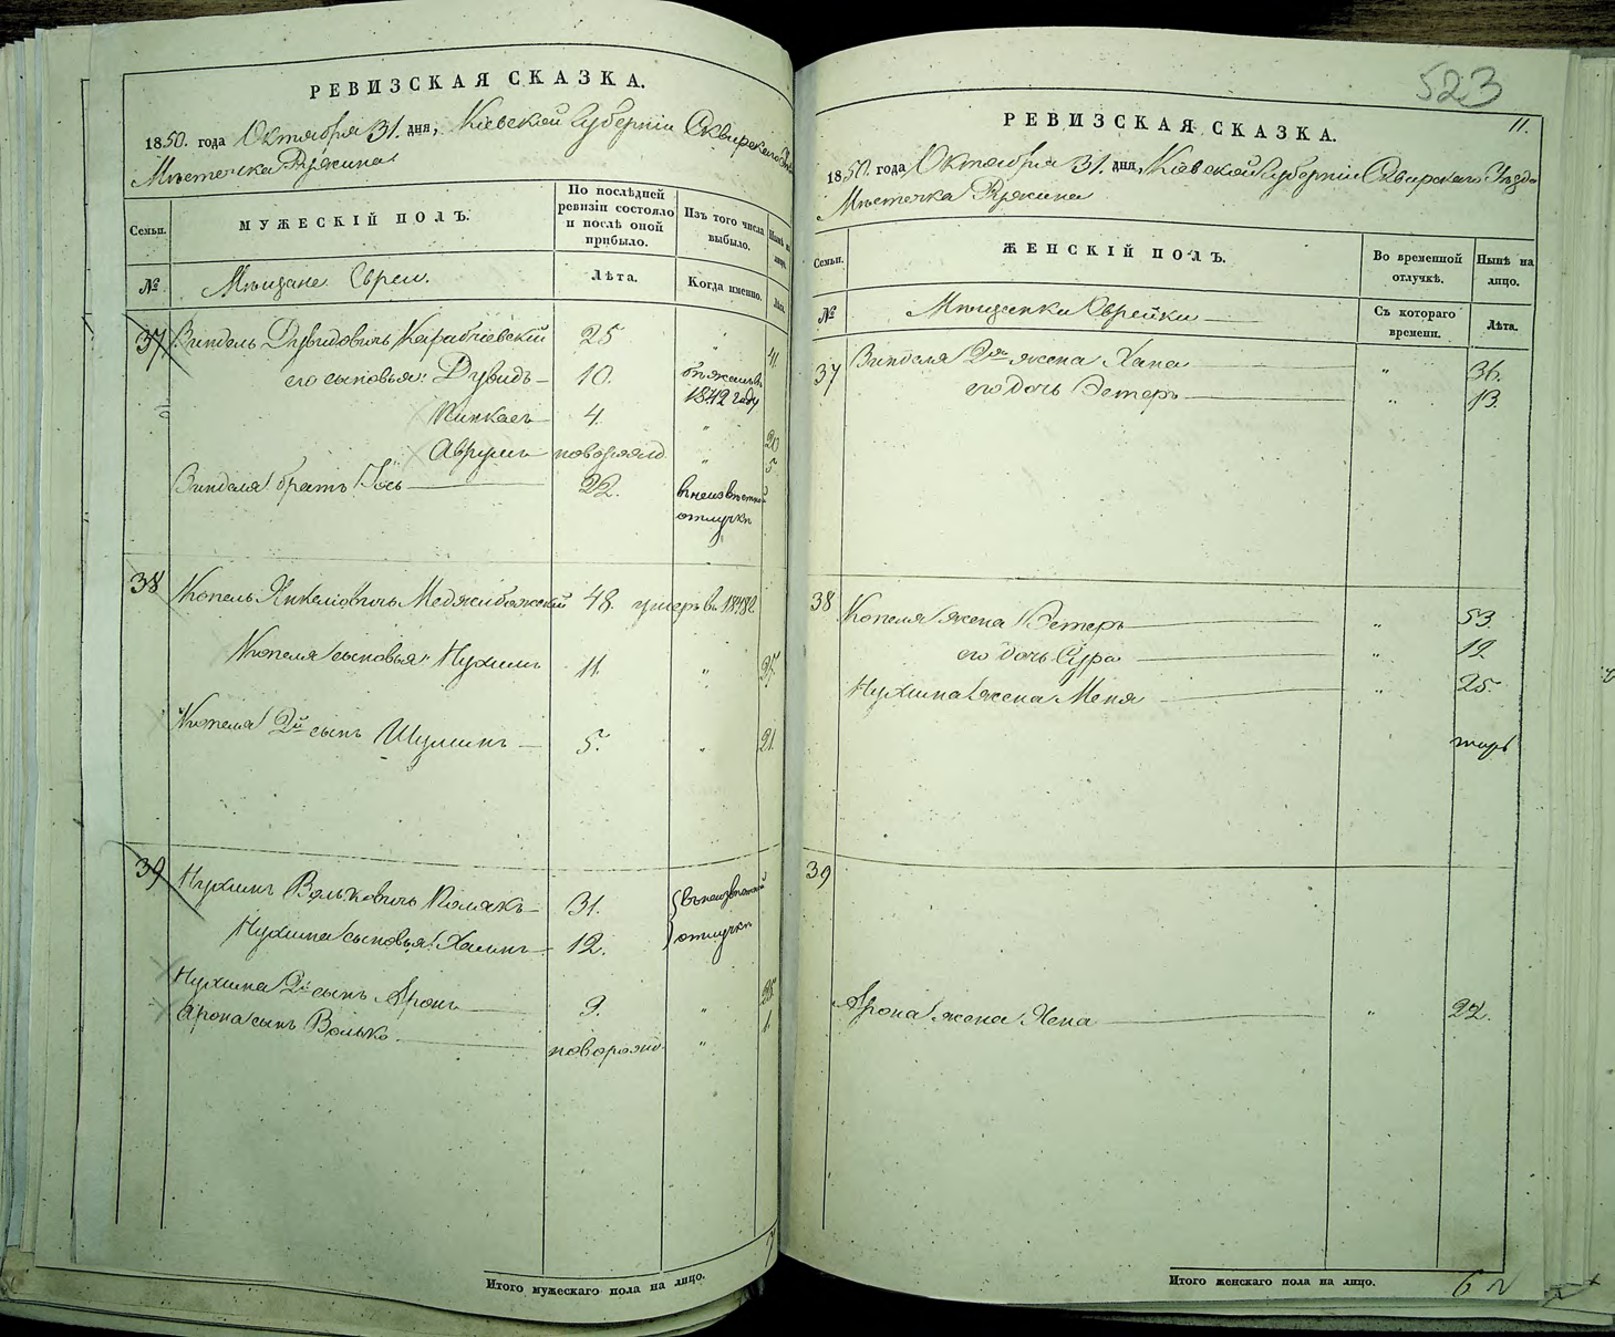 РЕВИЗСКАЯ СКАЗКА.
1850. года Октября 31. дня, Кіевской Губерніи Сквирскаго
Мѣстечка Ружина
Семьи.
МУЖЕСКІЙ ПОЛЪ.
По послѣдней ревизіи состояло и послѣ оной прибыло.
Изъ того числа выбыло.
№
Мѣщане Евреи.
Лѣта.
Когда именно.
Лѣта.
37 Дувидовичъ Карабчіевскій 25 " 41
его сыновья: Дувидъ 10. 1842 году
Пинкасъ 4. " 20
Аврумъ новорожд " 5
братъ Іось 22. въ неизвѣстной
отлучкѣ
38 Копель Янкеліовичъ Меджибожскій 48. умеръ въ
Копеля сыновья: Нухимъ 11. " 27
Копеля 2й сынъ Шулимъ 5. " 21.
39 Нухимъ Вольковичъ Полякъ 31. въ неизвѣстной
Нухима сыновья: Хаимъ 12. отлучкѣ
Нухима 2й сынъ Аронъ 9. "
Арона сынъ Волько новорожд. " 1.
Итого мужескаго пола на лицо.
523
11.
РЕВИЗСКАЯ СКАЗКА.
1850. года Октября 31. дня, Кіевской Губерніи Сквирскаго Уѣзда
Мѣстечка Ружина
Семьи.
ЖЕНСКІЙ ПОЛЪ.
Во временной отлучкѣ.
Нынѣ на лицо.
№
Мѣщанки Еврейки
Съ котораго времени.
Лѣта.
37 2я жена Хана " 36.
его дочь Эстеръ " 13.
38 Копеля жена Эстеръ " 53.
его дочь Сура " 12.
Нухима жена Меня " 25.
39
Арона жена Хена " 22.
Итого женскаго пола на лицо. 6